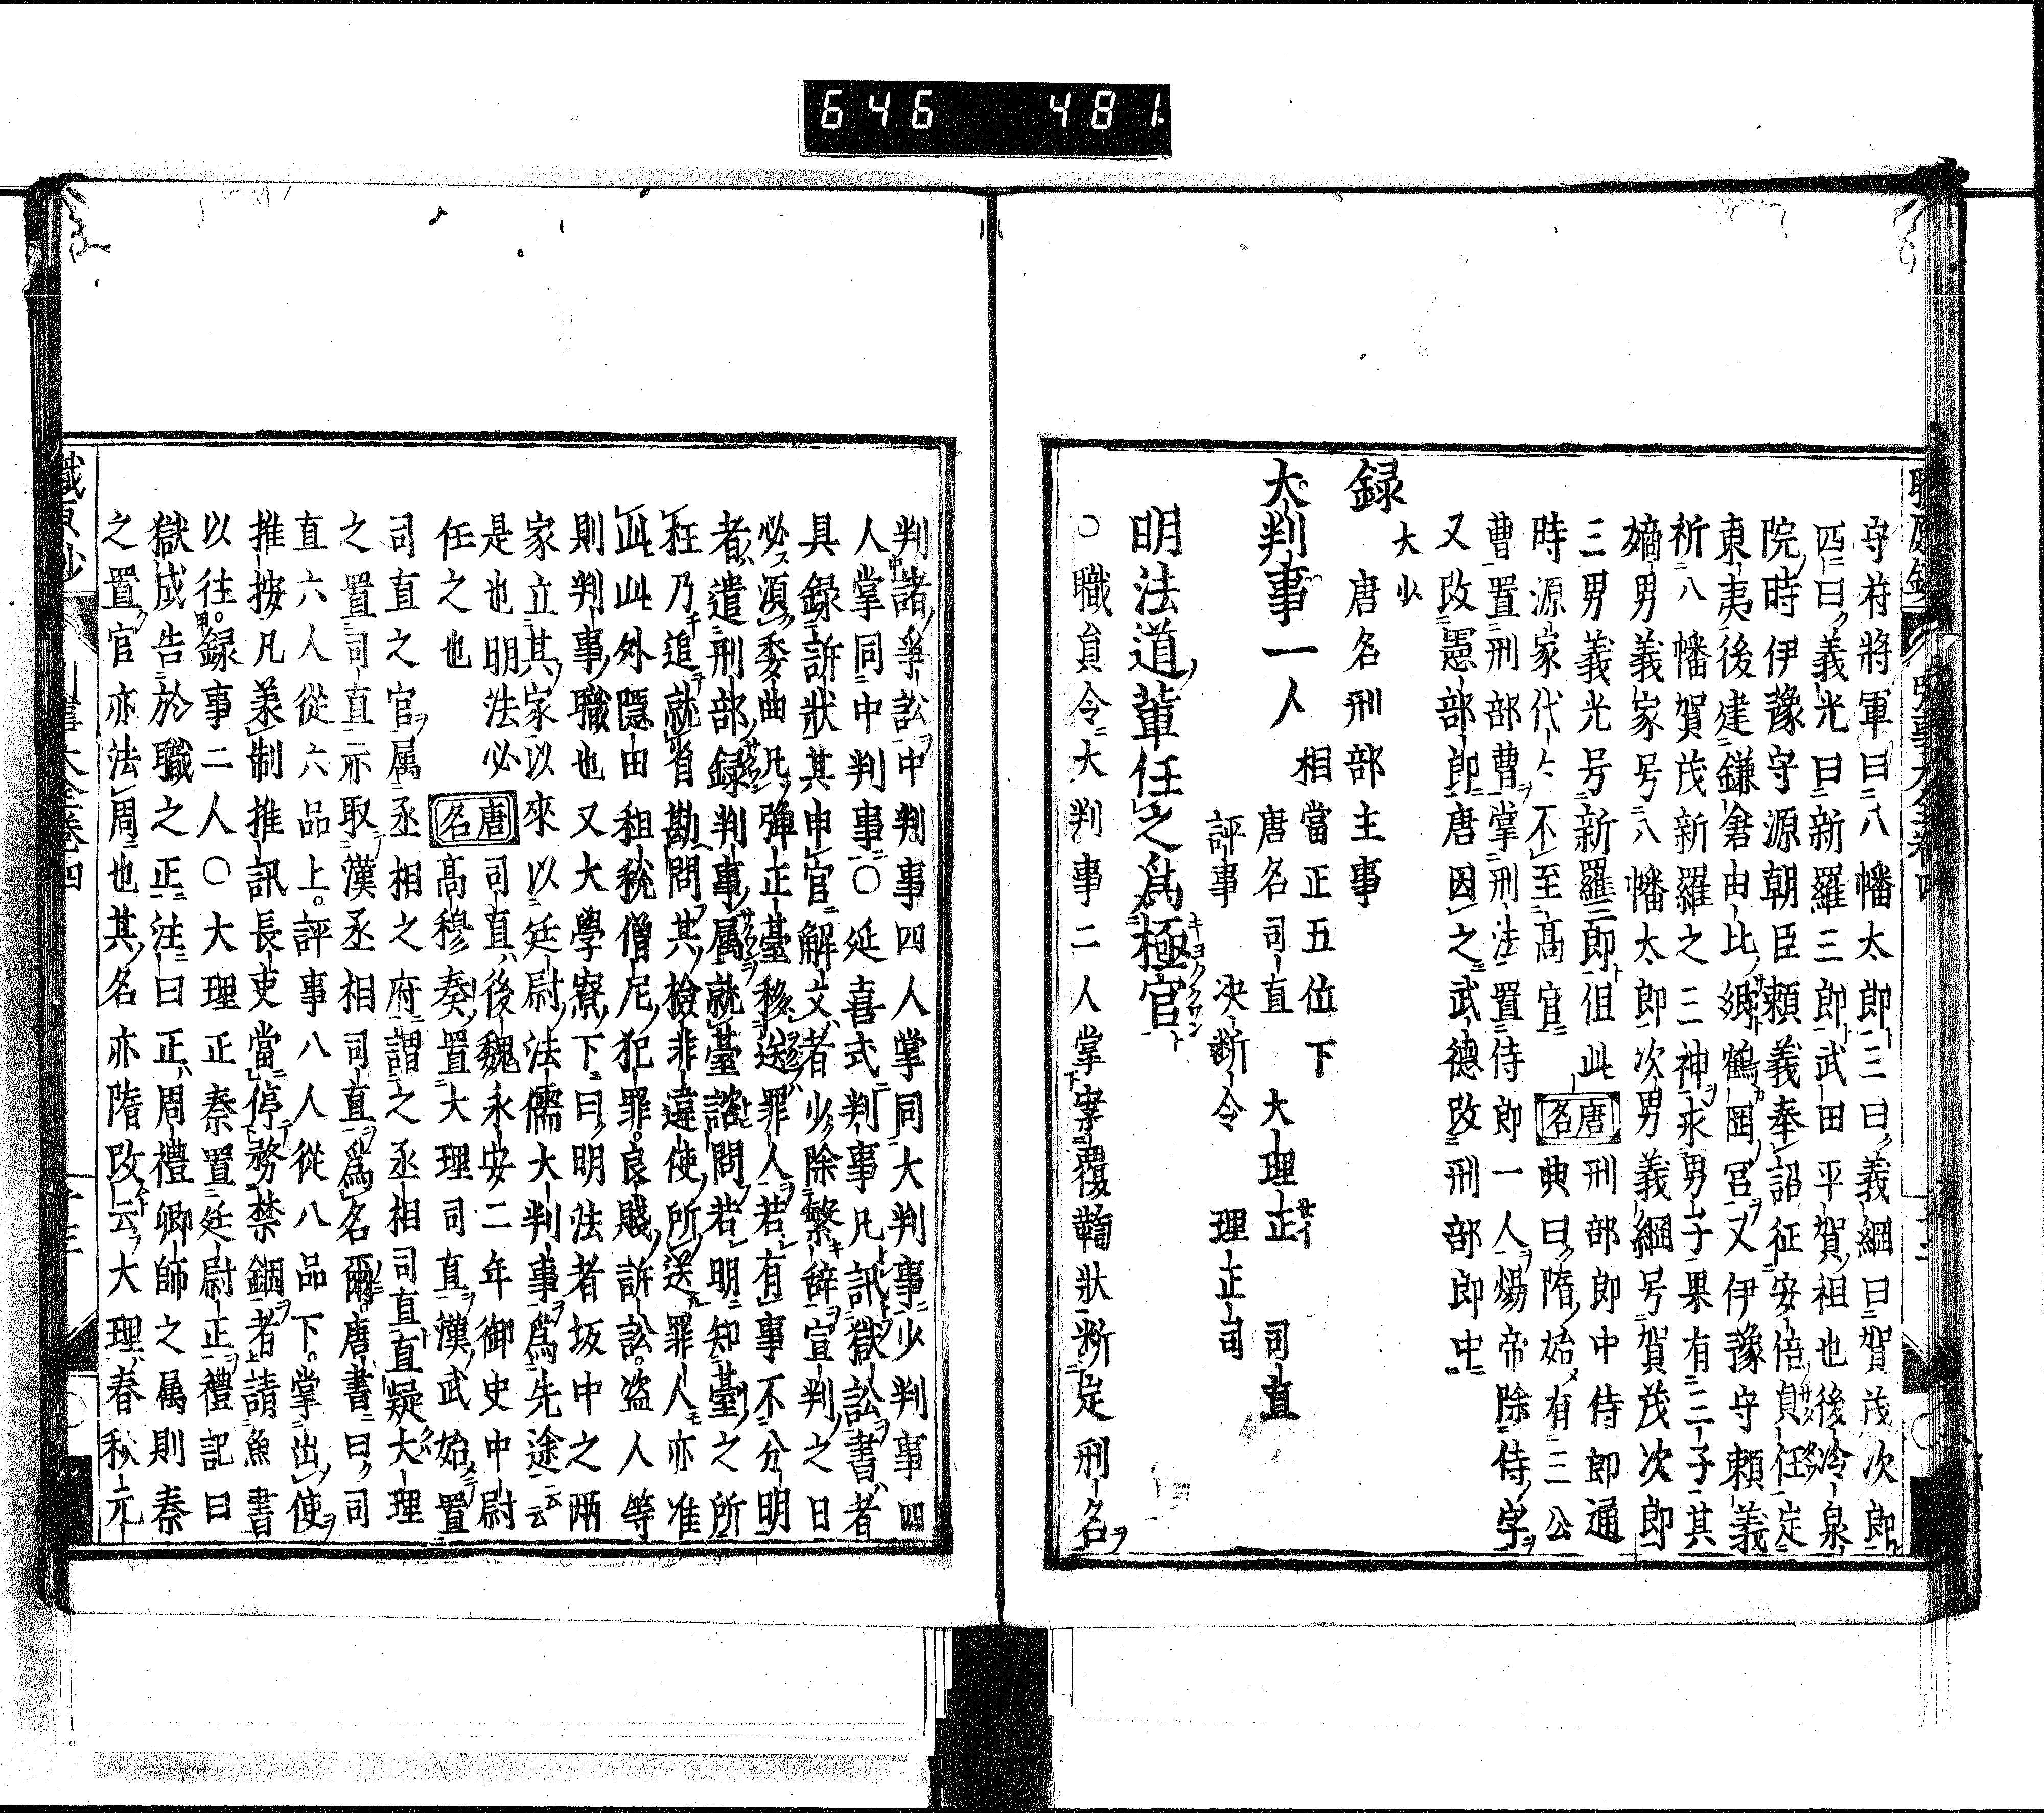 646 481
守府將軍曰八幡太郎三曰義綱曰賀茂次郎
四曰義光曰新羅三郎武田平賀祖也後冷泉
院時伊豫守源朝臣賴義奉詔征安倍貞任定
東夷後建鎌倉由比郷鶴岡宮又伊豫守賴義
祈八幡賀茂新羅之三神求男子果有三子其
嫡男義家号八幡太郎次男義綱号賀茂次郎
三男義光号新羅三郎但此
時源家代々不至高官
唐名
刑部郎中侍郎通
典曰隋始有三公
曹置刑部曹掌刑法置侍郎一人煬帝除侍字
又改憲部郎唐因之武德改刑部郎中
大少
録 唐名刑部主事
大判事一人 相當正五位下
唐名司直 大理正 司直
評事 決斷令 理正司
明法道輩任之為極官
○職員令大判事二人掌案覆鞫狀斷定刑名
判諸爭訟中判事四人掌同大判事少判事四
人掌同中判事○延喜式判事凡訊獄訟書者
具録訴狀其申官解文者少除繁辭宣判之日
必須委曲凡彈正臺移送罪人若有事不分明
者遣刑部録判事属就臺詰問若明知臺之所
枉乃追就省勘問其檢非違使所送罪人亦准
此此外隱由租税僧尼犯罪良賤訴訟盗人等
則判事職也又大學寮下曰明法者坂中之兩
家立其家以來以廷尉法儒大判事為先途云云
是也明法必
任之也
唐名
司直後魏永安二年御史中尉
高穆奏置大理司直漢武始置
司直之官属丞相之府謂之丞相司直直疑大理
之置司直亦取漢丞相司直為名爾唐書曰司
直六人從六品上評事八人從八品下掌出使
推按凡承制推訊長吏當停務禁錮者請魚書
以往録事二人○大理正秦置廷尉正禮記曰
獄成告於職之正注曰正周禮卿師之属則秦
之置官亦法周也其名亦隋改云大理春秋元